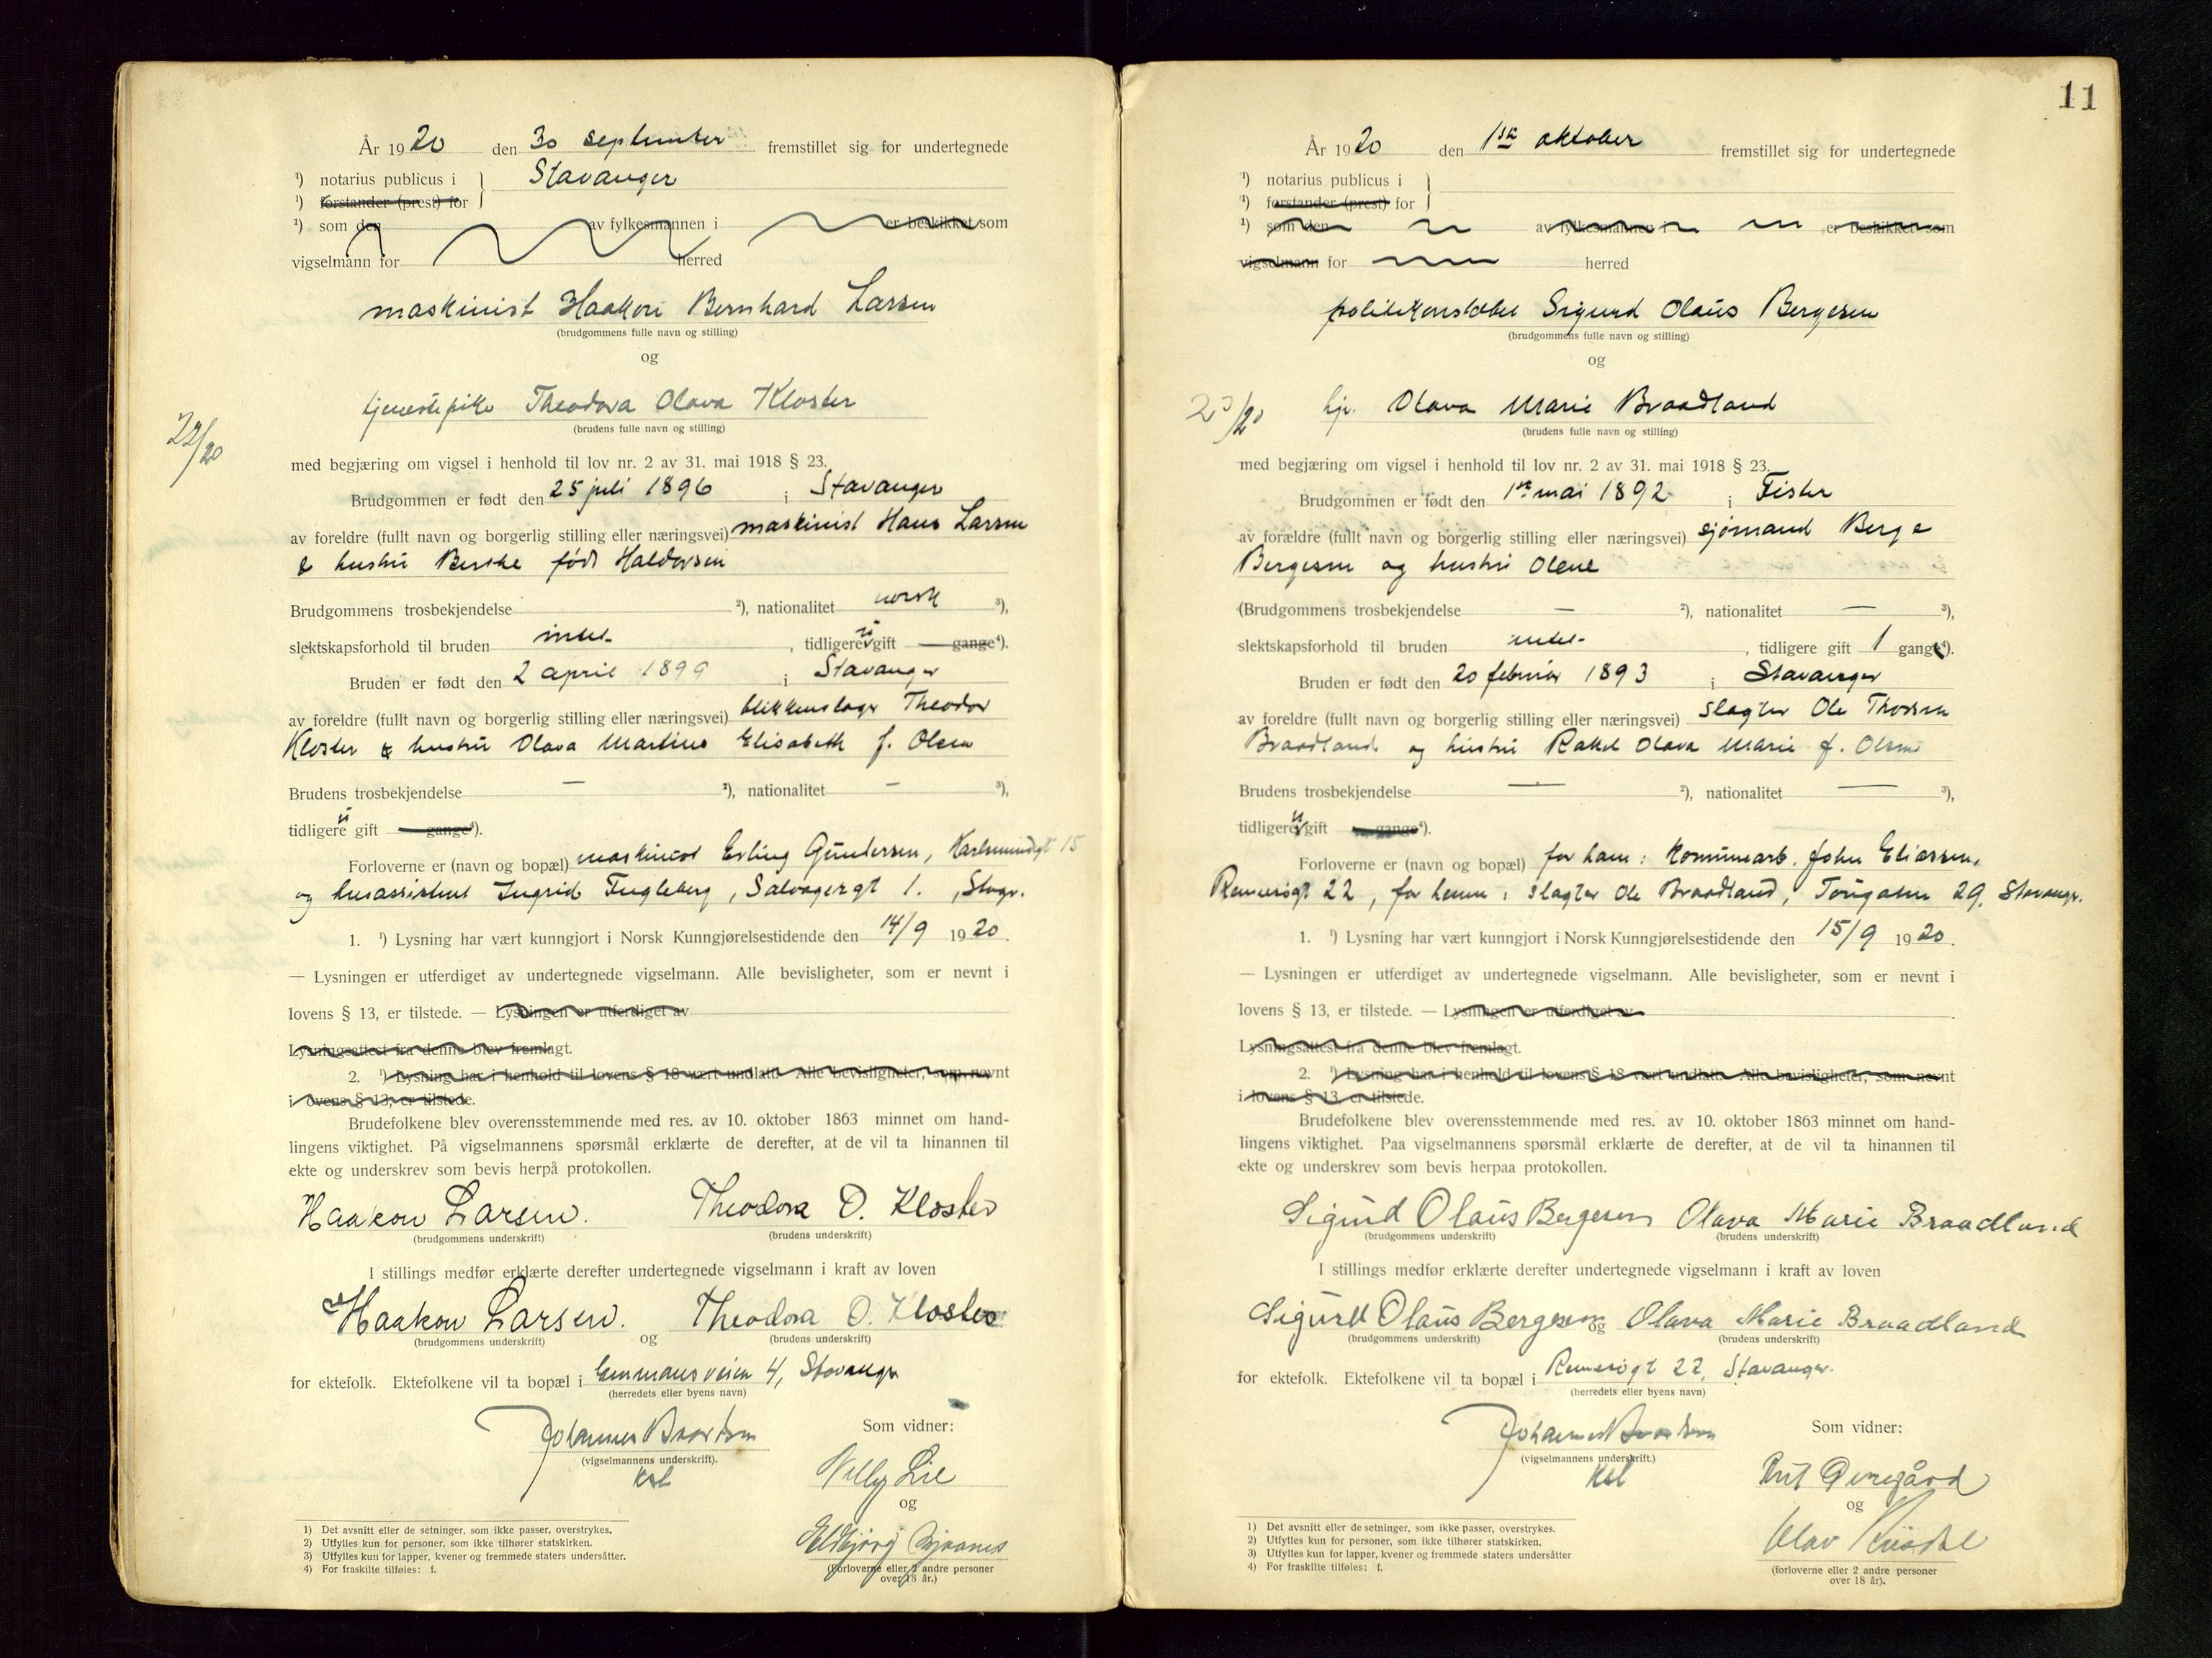 År 1920 den 30 september fremstillet sig for undertegnede
¹) notarius publicus i } Stavanger
¹) forstander (prest) for
¹) som den av fylkesmannen i er beskikket som
vigselmann for herred
maskinist Haakon Bernhard Larsen
(brudgommens fulle navn og stilling)
og
tjenestepike Theodora Olava Kloster
(brudens fulle navn og stilling)
22/20
med begjæring om vigsel i henhold til lov nr. 2 av 31. mai 1918 § 23.
Brudgommen er født den 25 juli 1896 i Stavanger
av foreldre (fullt navn og borgerlig stilling eller næringsvei) maskinist Hans Larsen
& hustru Berthe født Haldorsen
Brudgommens trosbekjendelse ²), nationalitet norsk ³),
slektskapsforhold til bruden intet , tidligere ei gift gange⁴).
Bruden er født den 2 april 1899 i Stavanger
av foreldre (fullt navn og borgerlig stilling eller næringsvei) blikkenslager Theodor
Kloster & hustru Olava Martine Elisabeth f. Olsen
Brudens trosbekjendelse — ²), nationalitet — ³),
tidligere ei gift gange⁴).
Forloverne er (navn og bopæl) maskinist Erling Gundersen, 15
og husassistent Ingrid Fugleberg, Salvagergt 1. , Stvgr.
1. ¹) Lysning har vært kunngjort i Norsk Kunngjørelsestidende den 14/9 1920.
— Lysningen er utferdiget av undertegnede vigselmann. Alle bevisligheter, som er nevnt i
lovens § 13, er tilstede. — Lysningen er utferdiget av
Lysningsattest fra denne blev fremlagt.
2. ¹) Lysning har i henhold til lovens § 18 vært undlatt. Alle bevisligheter, som nevnt
i lovens § 13, er tilstede.
Brudefolkene blev overensstemmende med res. av 10. oktober 1863 minnet om hand-
lingens viktighet. På vigselmannens spørsmål erklærte de derefter, at de vil ta hinannen til
ekte og underskrev som bevis herpå protokollen.
Haakon Larsen. Theodora O. Kloster
(brudgommens underskrift) (brudens underskrift)
I stillings medfør erklærte derefter undertegnede vigselmann i kraft av loven
Haakon Larsen. og Theodora O. Kloster
(brudgommens underskrift) (brudens underskrift)
for ektefolk. Ektefolkene vil ta bopæl i Emmausveien 4, Stavanger
(herredets eller byens navn)
Johannes Bærtsen Som vidner:
(vigselmannens underskrift).
kst Willy Lie
og
Eldbjørg Bjaanes
(Forloverne eller 2 andre personer
over 18 år.)
1) Det avsnitt eller de setninger, som ikke passer, overstrykes.
2) Utfylles kun for personer, som ikke tilhører statskirken.
3) Utfylles kun for lapper, kvener og fremmede staters undersåtter.
4) For fraskilte tilføies: f.
11
År 1920 den 1ste oktober fremstillet sig for undertegnede
¹) notarius publicus i }
¹) forstander (prest) for
¹) som den av fylkesmannen i er beskikket som
vigselmann for herred
politikonstabel Sigurd Olaus Bergesen
(brudgommens fulle navn og stilling)
og
23/20
hjv. Olava Marie Braadland
(brudens fulle navn og stilling)
med begjæring om vigsel i henhold til lov nr. 2 av 31. mai 1918 § 23.
Brudgommen er født den 1ste mai 1892 i Fister
av forældre (fullt navn og borgerlig stilling eller næringsvei) sjømand Berge
Bergesen og hustru Olene
(Brudgommens trosbekjendelse — ²), nationalitet — ³),
slektskapsforhold til bruden intet , tidligere gift 1 gang⁴).
Bruden er født den 20 februar 1893 i Stavanger
av foreldre (fullt navn og borgerlig stilling eller næringsvei) slagter Ole Thorsen
Braadland og hustru Rakel Olava Marie f. Olsen
Brudens trosbekjendelse — ²), nationalitet — ³),
tidligere ei gift gange⁴).
Forloverne er (navn og bopæl) for ham: kommunearb. John Eliassen,
Rennesøgt 22, for henne: slagter Ole Braadland, Torvgaten 29, Stavanger.
1. ¹) Lysning har vært kunngjort i Norsk Kunngjørelsestidende den 15/9 1920.
— Lysningen er utferdiget av undertegnede vigselmann. Alle bevisligheter, som er nevnt i
lovens § 13, er tilstede. — Lysningen er utferdiget av .
Lysningsattest fra denne blev fremlagt.
2. ¹) Lysning har i henhold til lovens § 18 vært undlatt. Alle bevisligheter, som nevnt
i lovens § 13, er tilstede.
Brudefolkene blev overensstemmende med res. av 10. oktober 1863 minnet om hand-
lingens viktighet. Paa vigselmannens spørsmål erklærte de derefter, at de vil ta hinannen til
ekte og underskrev som bevis herpaa protokollen.
Sigurd Olaus Bergesen Olava Marie Braadland
(brudgommens underskrift) (brudens underskrift)
I stillings medfør erklærte derefter undertegnede vigselmann i kraft av loven
Sigurd Olaus Bergesen og Olava Marie Braadland
(brudgommens underskrift) (brudens underskrift)
for ektefolk. Ektefolkene vil ta bopæl i Rennesøgt 22, Stavanger.
(herredets eller byens navn)
Johannes Bærtsen Som vidner:
(vigselmannens underskrift.)
kst
og
Olav
(forloverne eller 2 andre personer
over 18 år).
1) Det avsnitt eller de setninger, som ikke passer, overstrykes.
2) Utfylles kun for personer, som ikke tilhører statskirken.
3) Utfylles kun for lapper, kvener og fremmede staters undersåtter
4) For fraskilte tilføies: f.